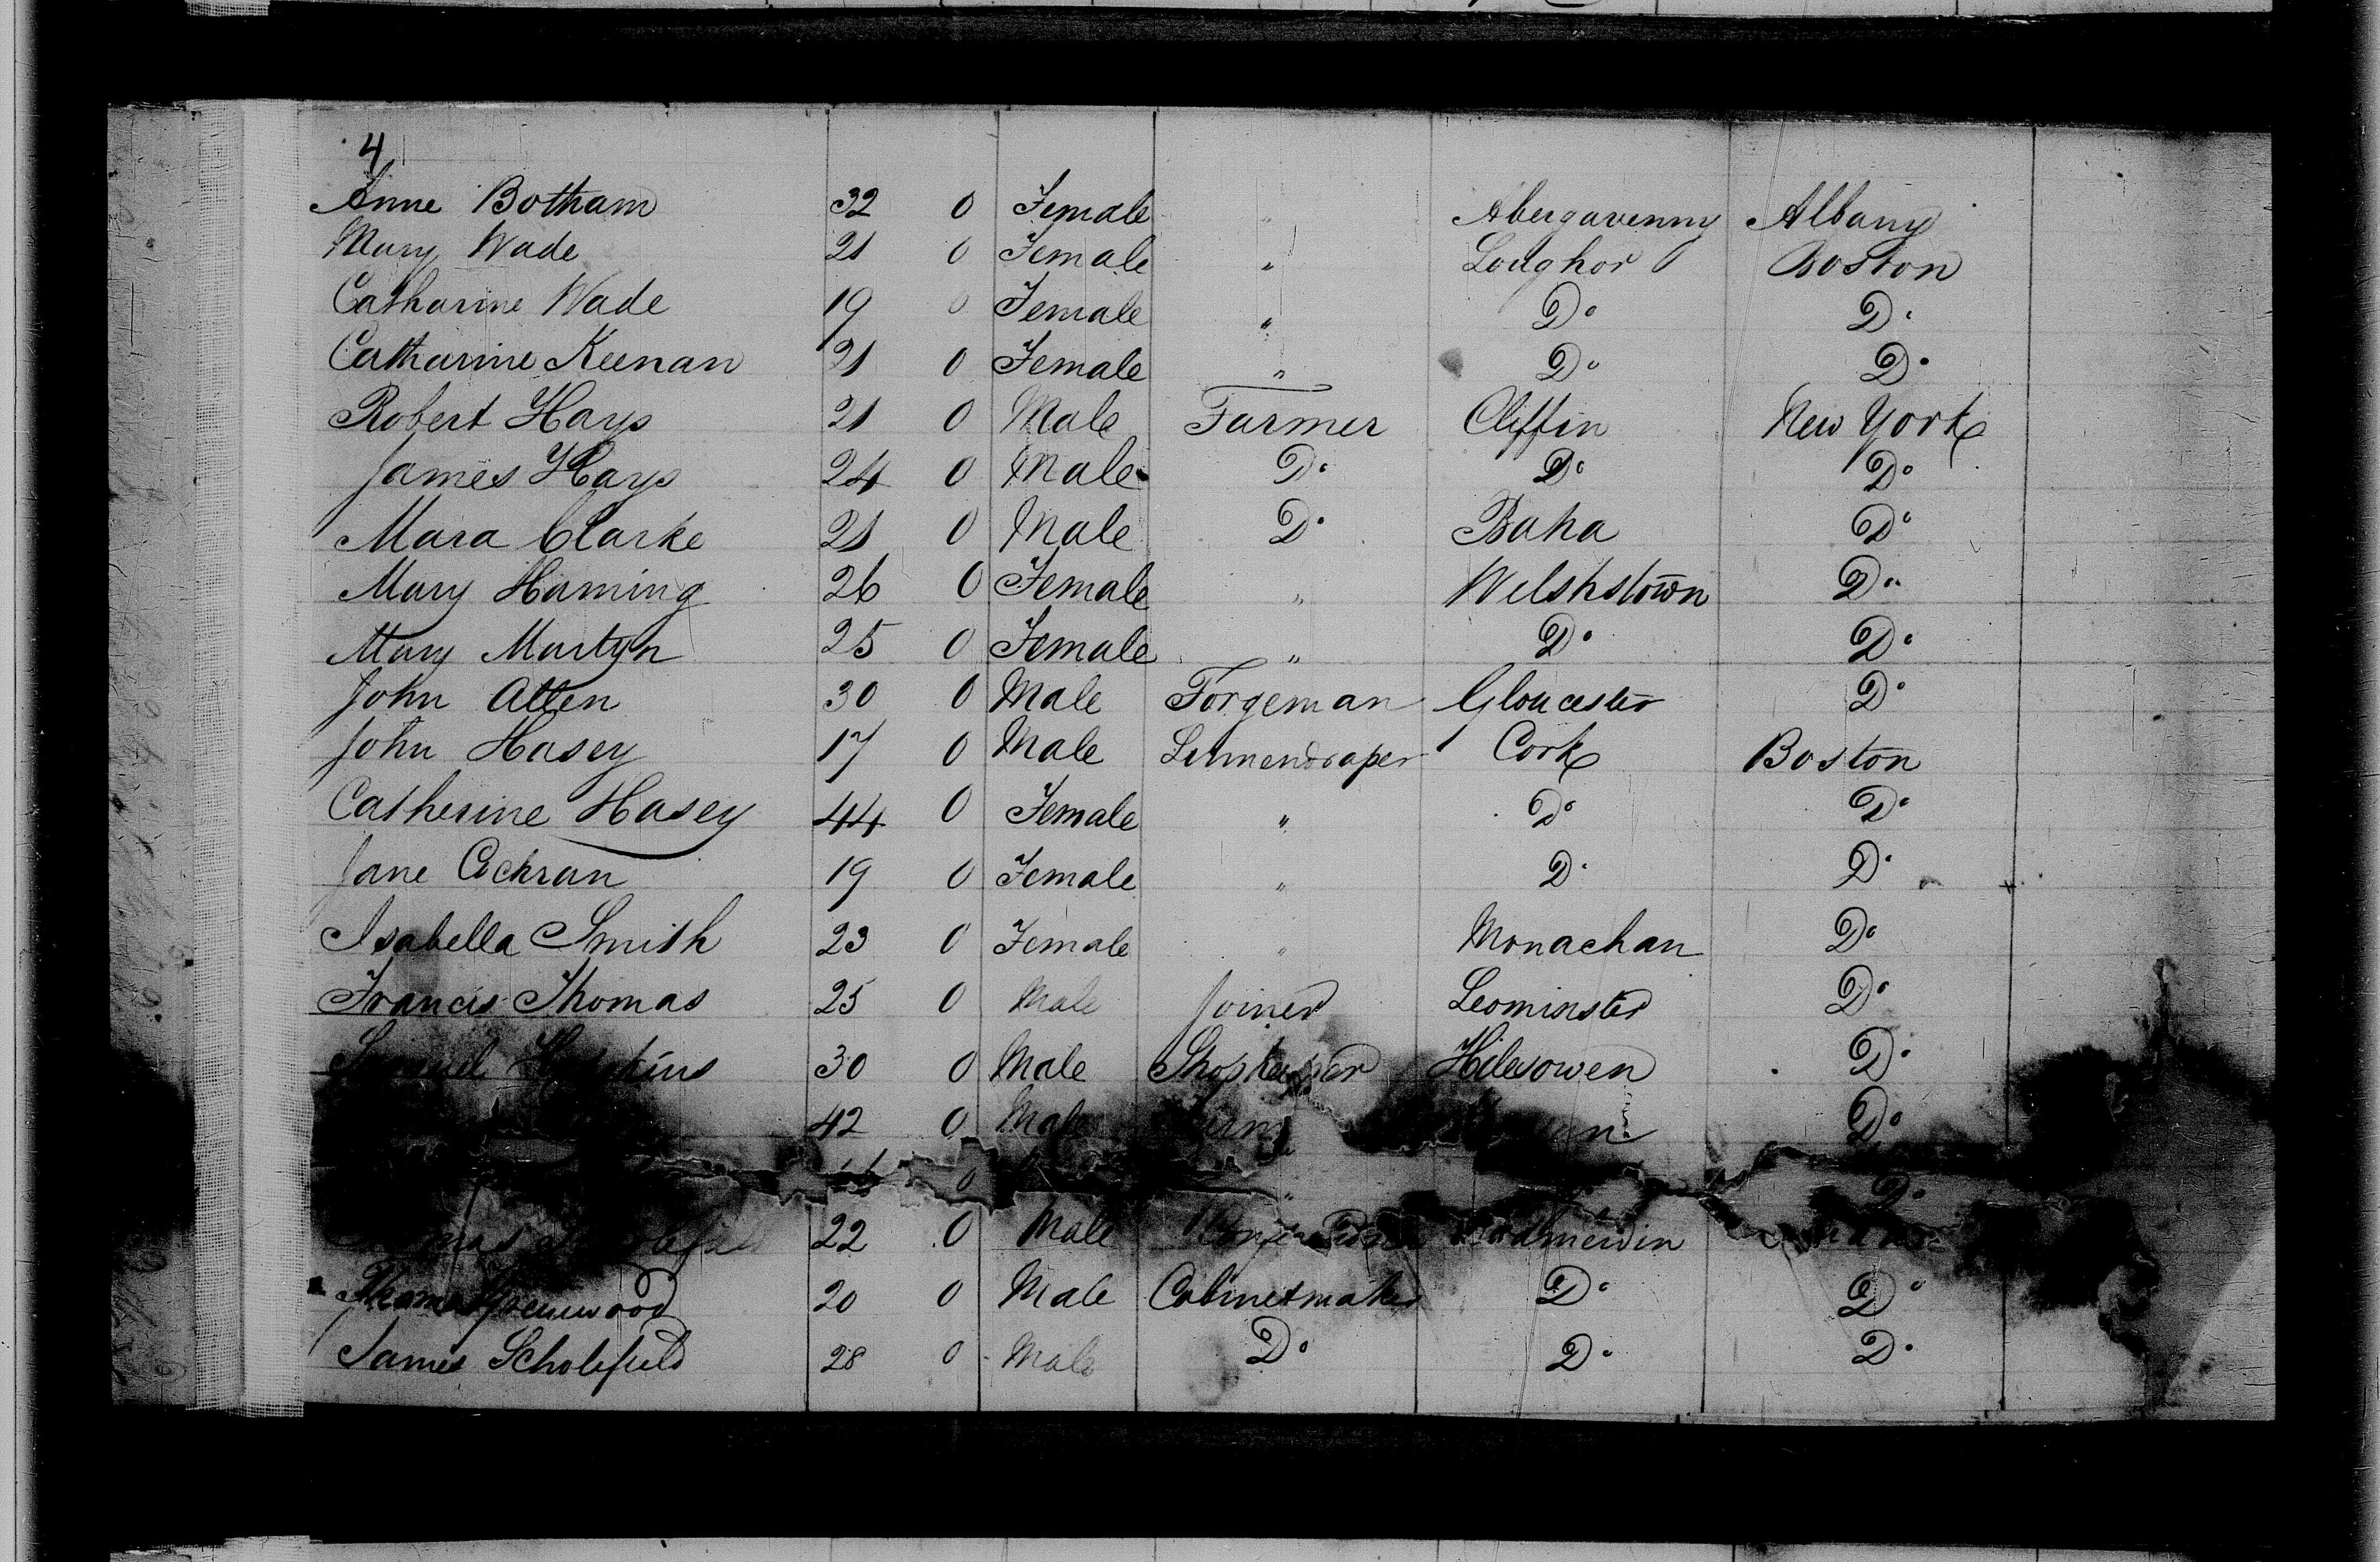 4
Anne Botham 32 0 Female " Abergavenny Albany
Mary Wade 21 0 Female " Loughor Boston
Catharine Wade 19 0 Female " Do Do
Catharine Keenan 21 0 Female " Do Do
Robert Hays 21 0 Male Farmer Cliffin New York
James Hays 24 0 Male Do Do Do
Mara Clarke 21 0 Male Do Baha Do
Mary Haming 26 0 Female " Welshstown Do
Mary Martyn 25 0 Female " Do Do
John Allen 30 0 Male Forgeman Gloucester Do
John Hasey 17 0 Male Linnendraper Cork Boston
Catherine Hasey 44 0 Female " Do Do
Jane Cochran 19 0 Female " Do Do
Isabella Smith 23 0 Female " Monachan Do
Francis Thomas 25 0 Male Joiner Leominster Do
Samuel 30 0 Male Shopkeeper Hilesowen Do
42 0 Male Do
0 " Do
22 0 Male
Thomas Greenwood 20 0 Male Cabinetmaker Do Do
James Scholefield 28 0 Male Do Do Do